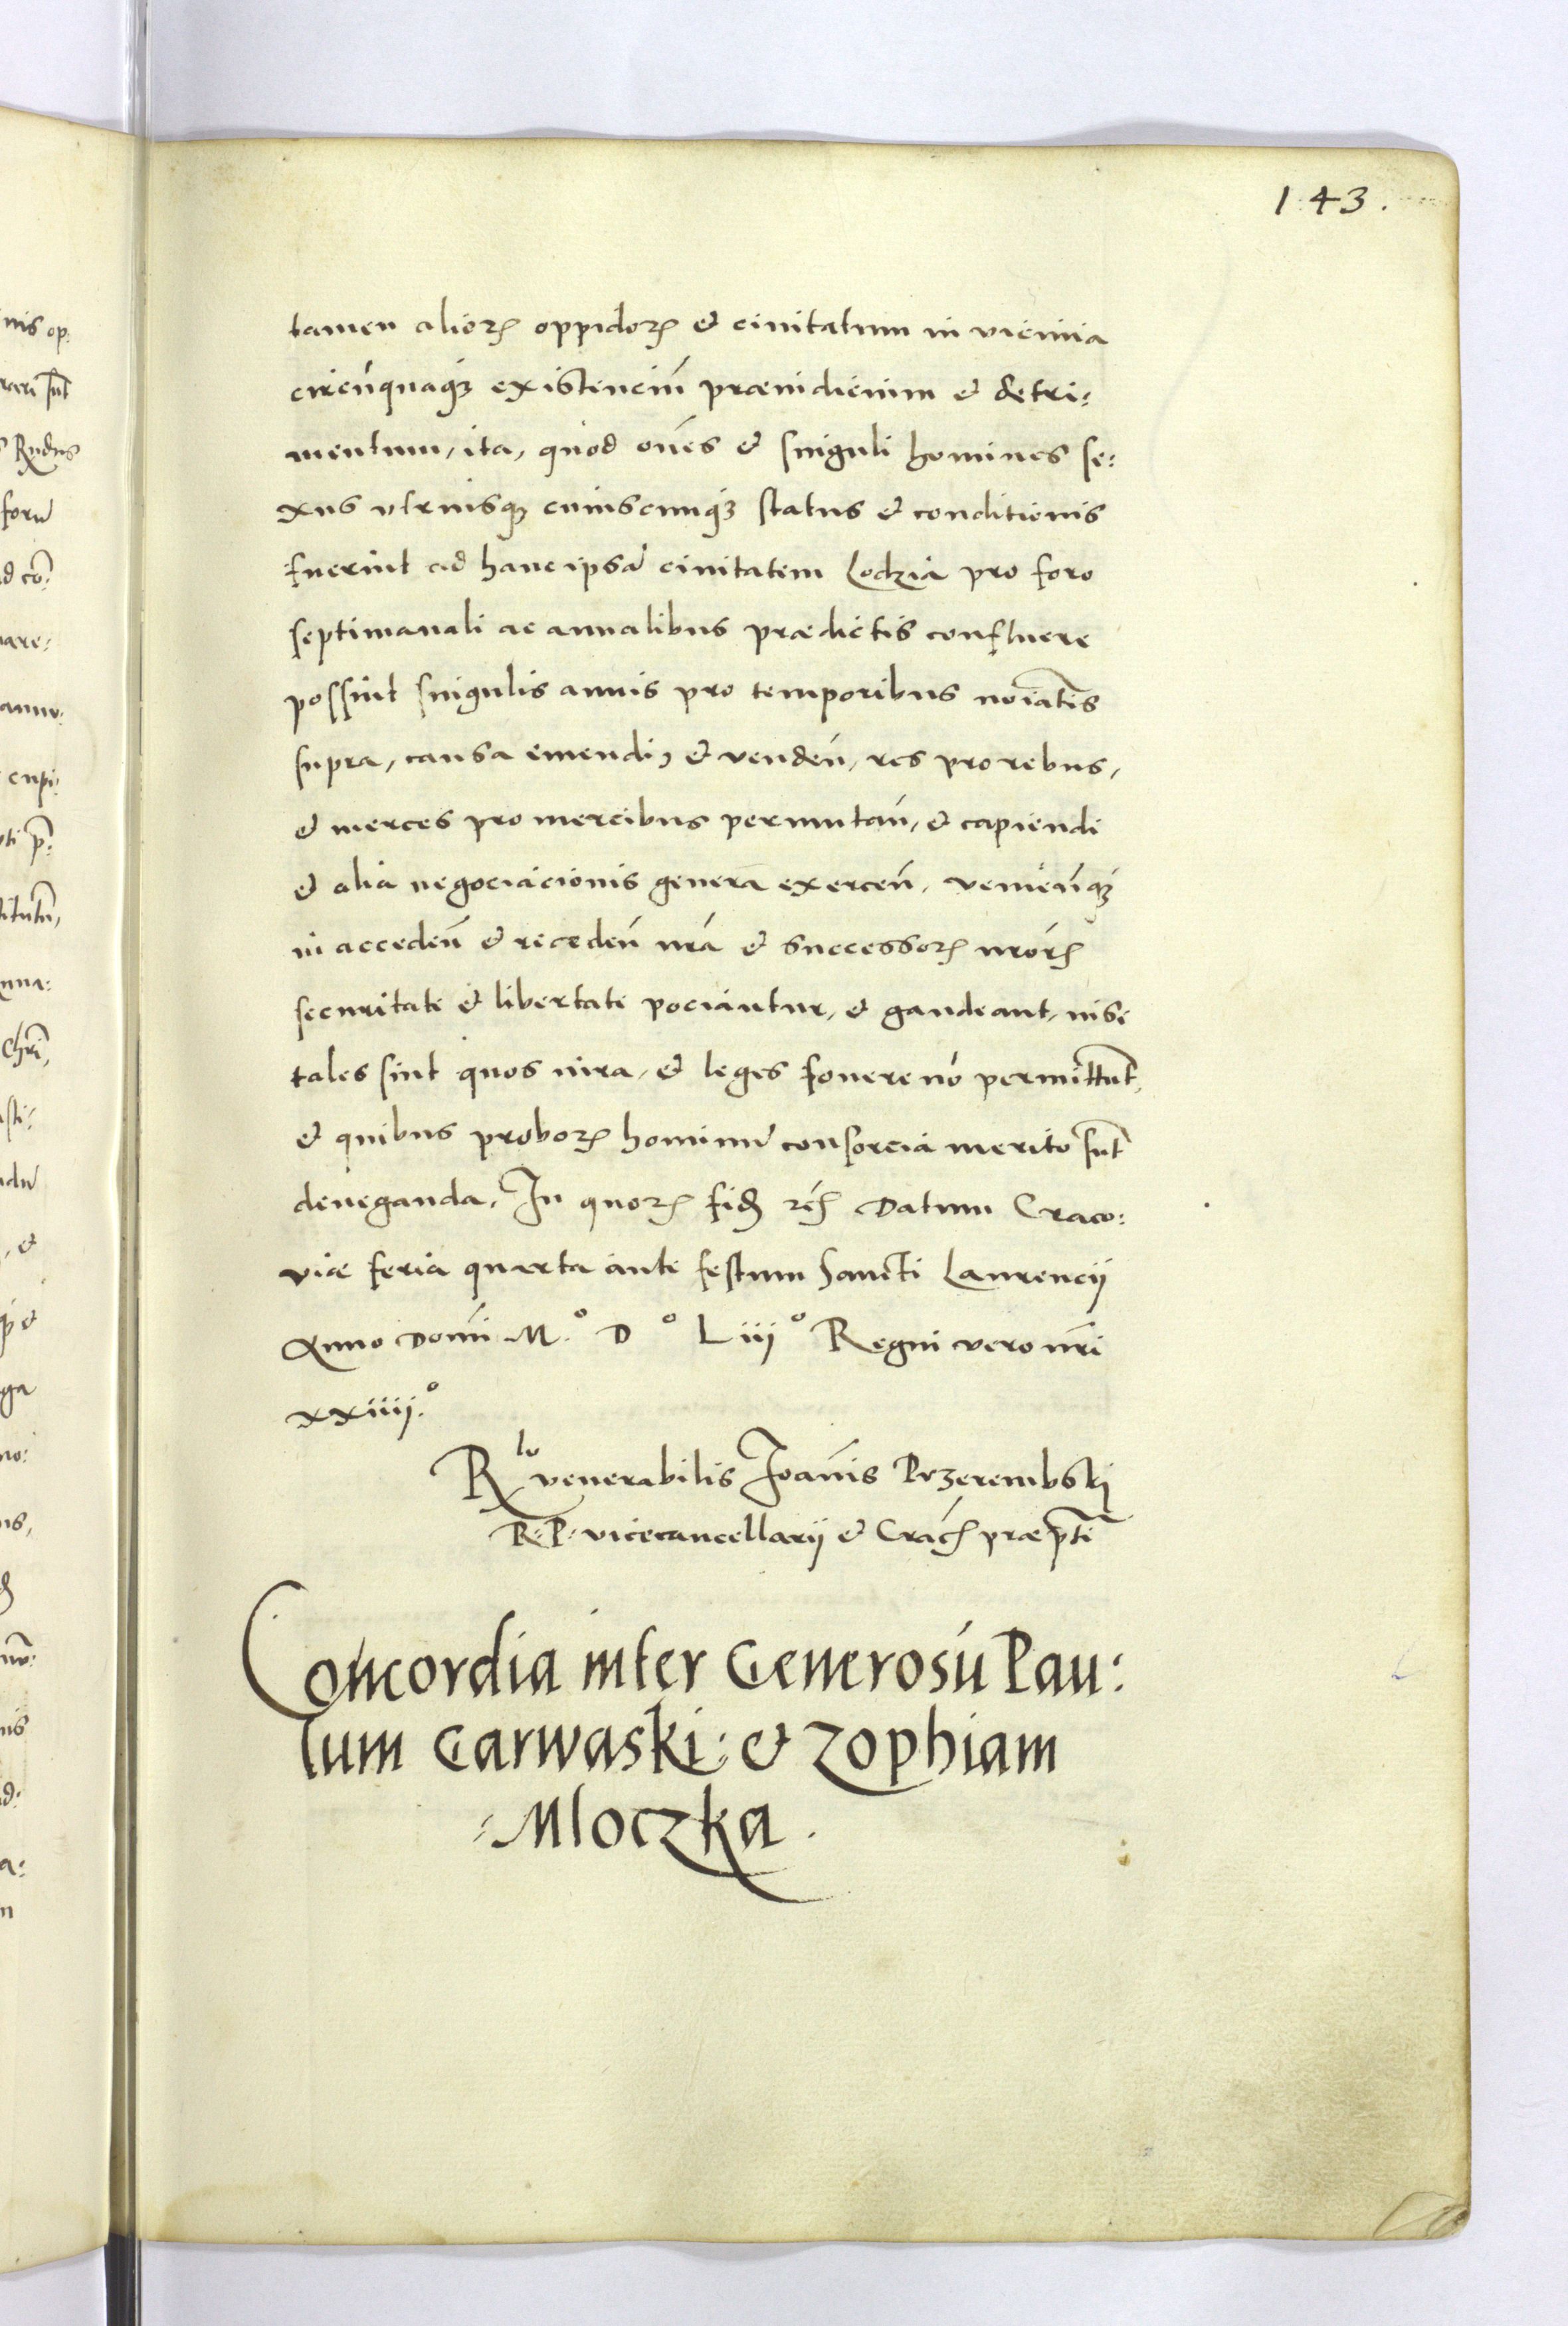 143.
tamen alioꝝ oppidoꝝ et civitatum in vicinia
circu̅quaqꝫ existenciu̅ præiudicium et detri:
mentum, ita, quod oe̅s et singuli homines se:
xus utriusqꝫ cuiuscunqꝫ status et conditionis
fueri̅nt ad hanc ipsa̅ civitatem Lodzia pro foro
septimanali ac annalibus prædictis confluere
possi̅nt singulis annis pro temporibus noi̅atis
supra, causa emendi, et venden̅, res pro rebus,
et merces pro mercibus permutan̅, et capiendi
et alia negociacionis genera exercen̅, venien̅qꝫ
in acceden̅ et receden̅ n̅ra et successoꝝ n̅roꝝ
securitate et libertate pociantur, et gaudeant, nisi
tales sint quos iura, et leges fovere no̅ permittu̅t,
et quibus proboꝝ hominu̅ consorcia merito su̅t
deneganda. In quoꝝ fid rc̅ Datum Craco:
viæ feria quarta ante festum Sancti Laurencij
Anno Domi̅ M.º Dº Liijº Regni vero n̅ri
xxiiij.º
R^lo venerabilis Joan̅is Przerembskj
R. P. vicecancellarij et Crac̅ præp̅ti
Concordia inter Generosu̅ Pau:
lum Garwaski: et Zophiam
Mloczka.